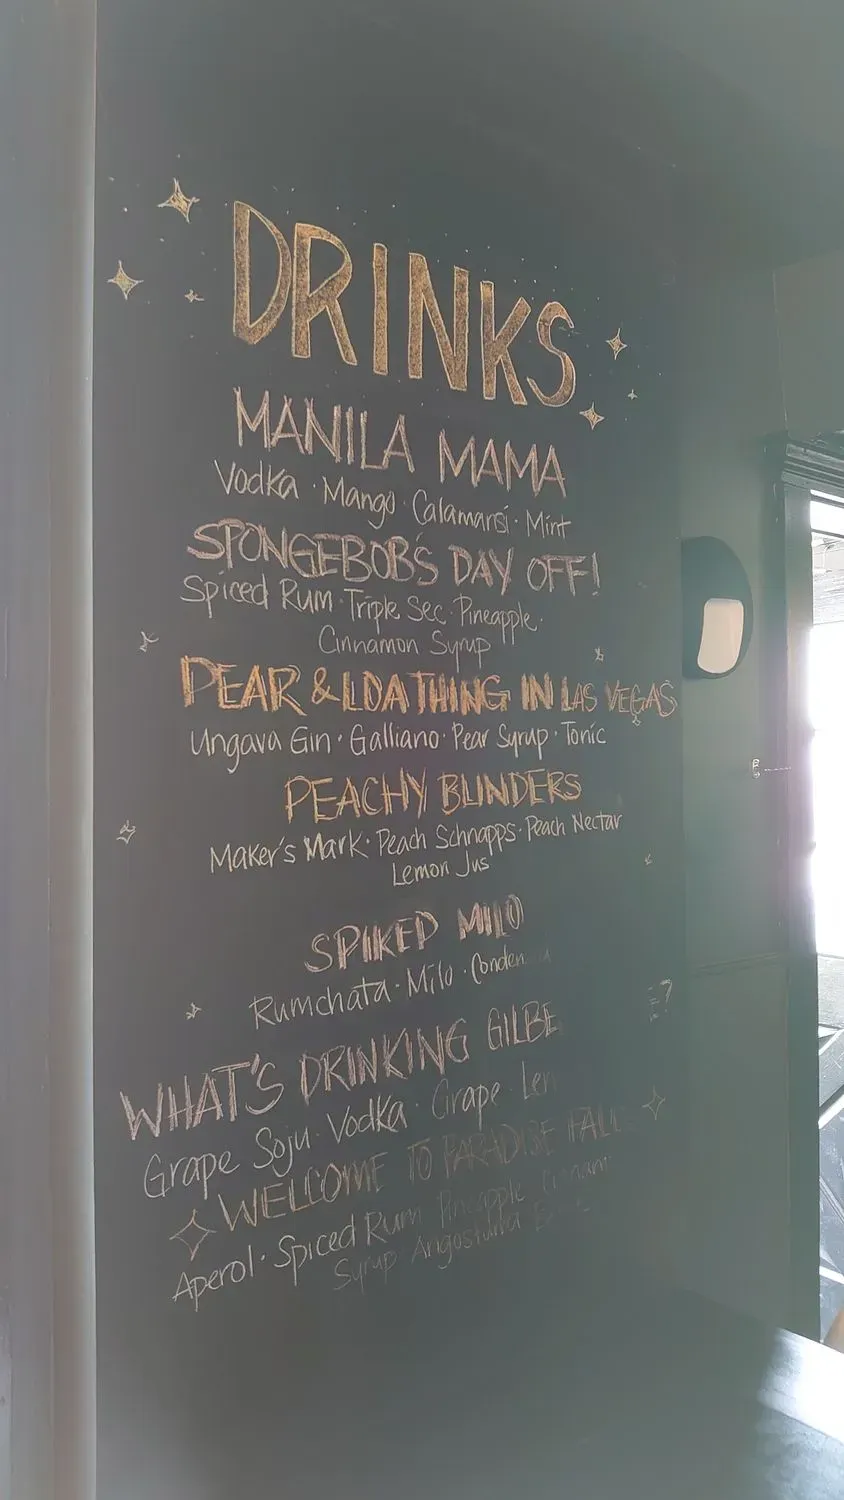 DRINKS
MANILA MAMA
Vodka · Mango · Calamansi · Mint
SPONGEBOB'S DAY OFF!
Spiced Rum · Triple Sec · Pineapple ·
Cinnamon Syrup
PEAR & LOATHING IN LAS VEGAS
Ungava Gin · Galliano · Pear Syrup · Tonic
PEACHY BLINDERS
Maker's Mark · Peach Schnapps · Peach Nectar
Lemon Jus
SPIKED MILO
Rumchata · Milo ·
WHAT'S DRINKING
Grape Soju · Vodka · Grape
WELCOME TO PARADISE
Aperol · Spiced Rum Pineapple
Syrup Angostura